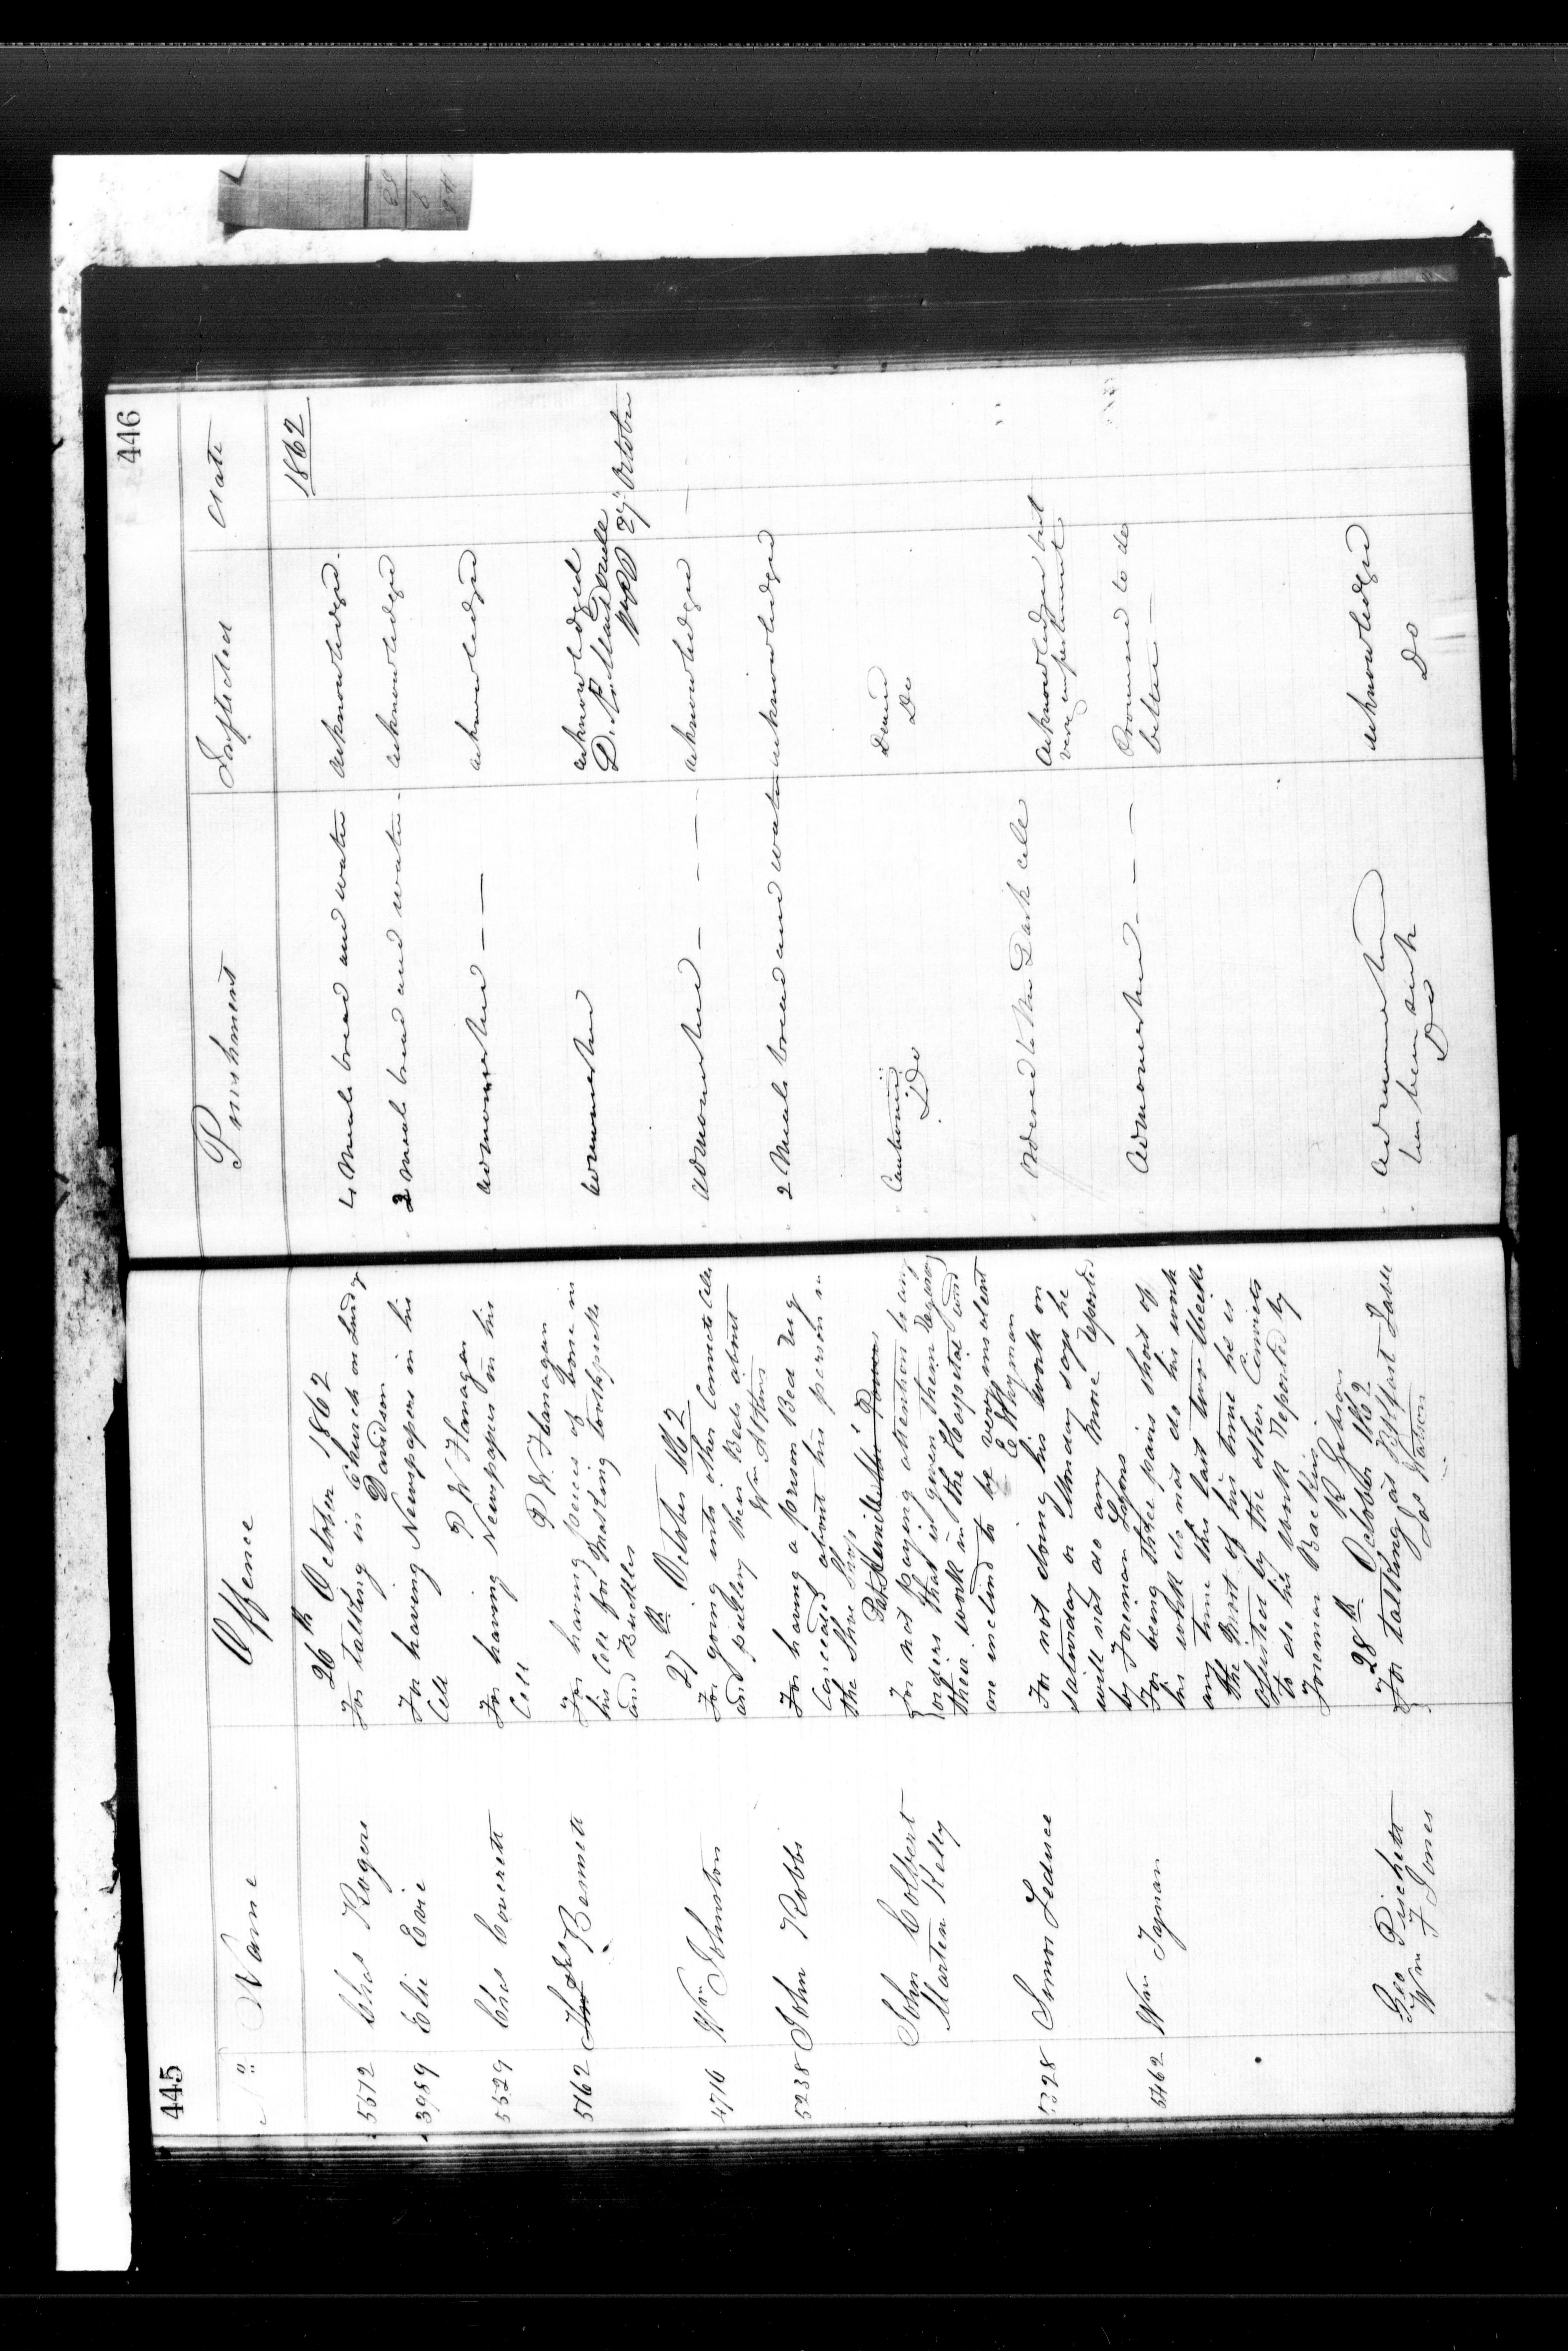 445
No Name Offence
26th October 1862
5572 Chas Rogers For talking in Church on Sunday
Davidson
3989 Elie Evie For having Newspapers in his
Cell
P W Flanagan
5529 Chas Coverett For having Newspapers in his
Cell
P W Flanagan
5162 Bennett For having peices of bone in
his Cell for making toothpicks
and Buckles
27th October 1862
4716 Wm Johnston For going into other Convicts Cells
and pulling their Beds about
Wm Atkins
5238 John Robbs For having a prison Bed Rug
Concealed about his person in
the Shoe Shop
John Colbert For not Paying attention to any
Marten Kelly orders that is given them Regarding
their work in the Hospital and
are inclind to be very insolent
5328 Simon Leduce For not doing his work on
saturday or Monday says he
will not do any more reported
by Foreman Lyons
5462 Wm Tagman For being three pains short of
his work do not do his work
any time this last two Weeks
the Most of his time he is
assisted by the other Convicts
to do his work Reported by
Foreman Backus
R Gibson
28th October 1862
Geo Pichett For talking at Brekfast Table
Wm F Jones Jas Watson
446
Punishment Inflicted Date
1862
4 Meals bread and water acknowledged
2 meals bread and water acknowledged
admonished acknowledged
admonished acknowledged
27 October
admonished acknowledged
2 Meals bread and water acknowledged
Cautioned Denied
Do Do
Ordered to the Dark cell acknowledged but
very impertinent
Admonished Promised to do
better
Admonished acknowledged
has been sick
Do Do